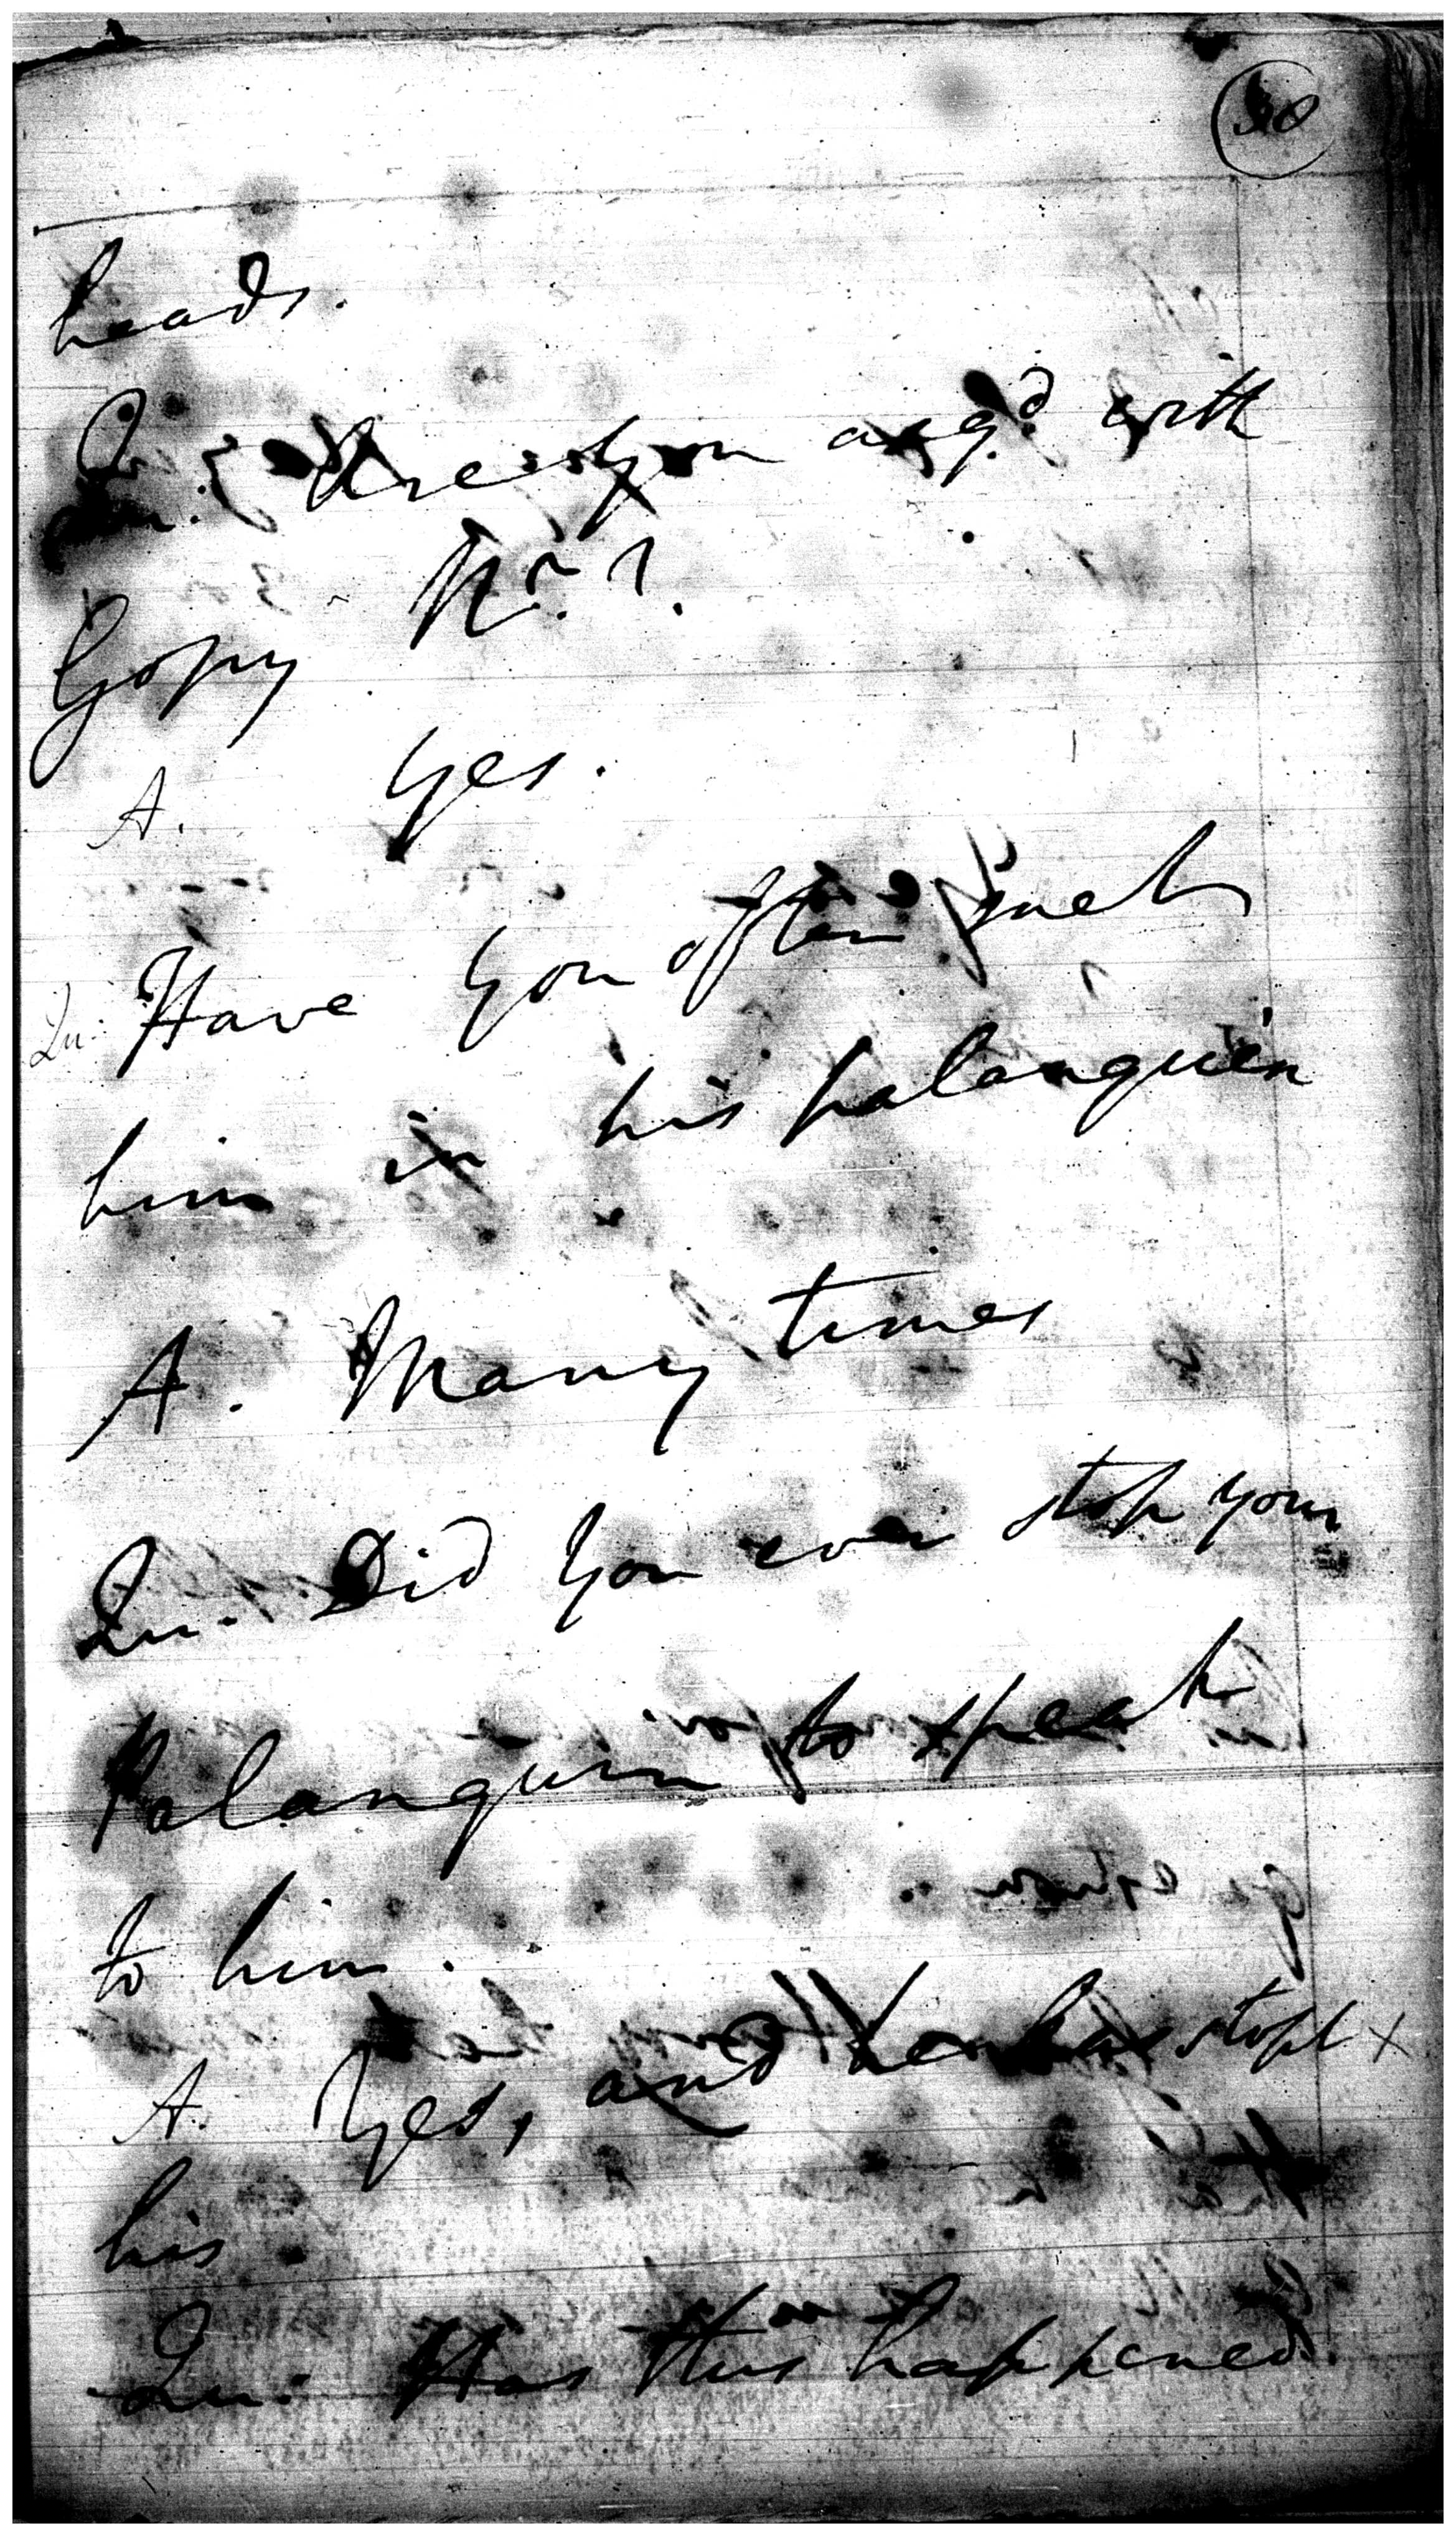 30
heads.
Qu: Are you acq.d with
Gopy Nr. 1.
A. Yes.
Qu: Have you often met
him in his palanquin
A. Many times
Qu. Did you ever stop your
Palanquin to speak
to him.
A. Yes, and he has stopt x
his
Qu: Has this happened